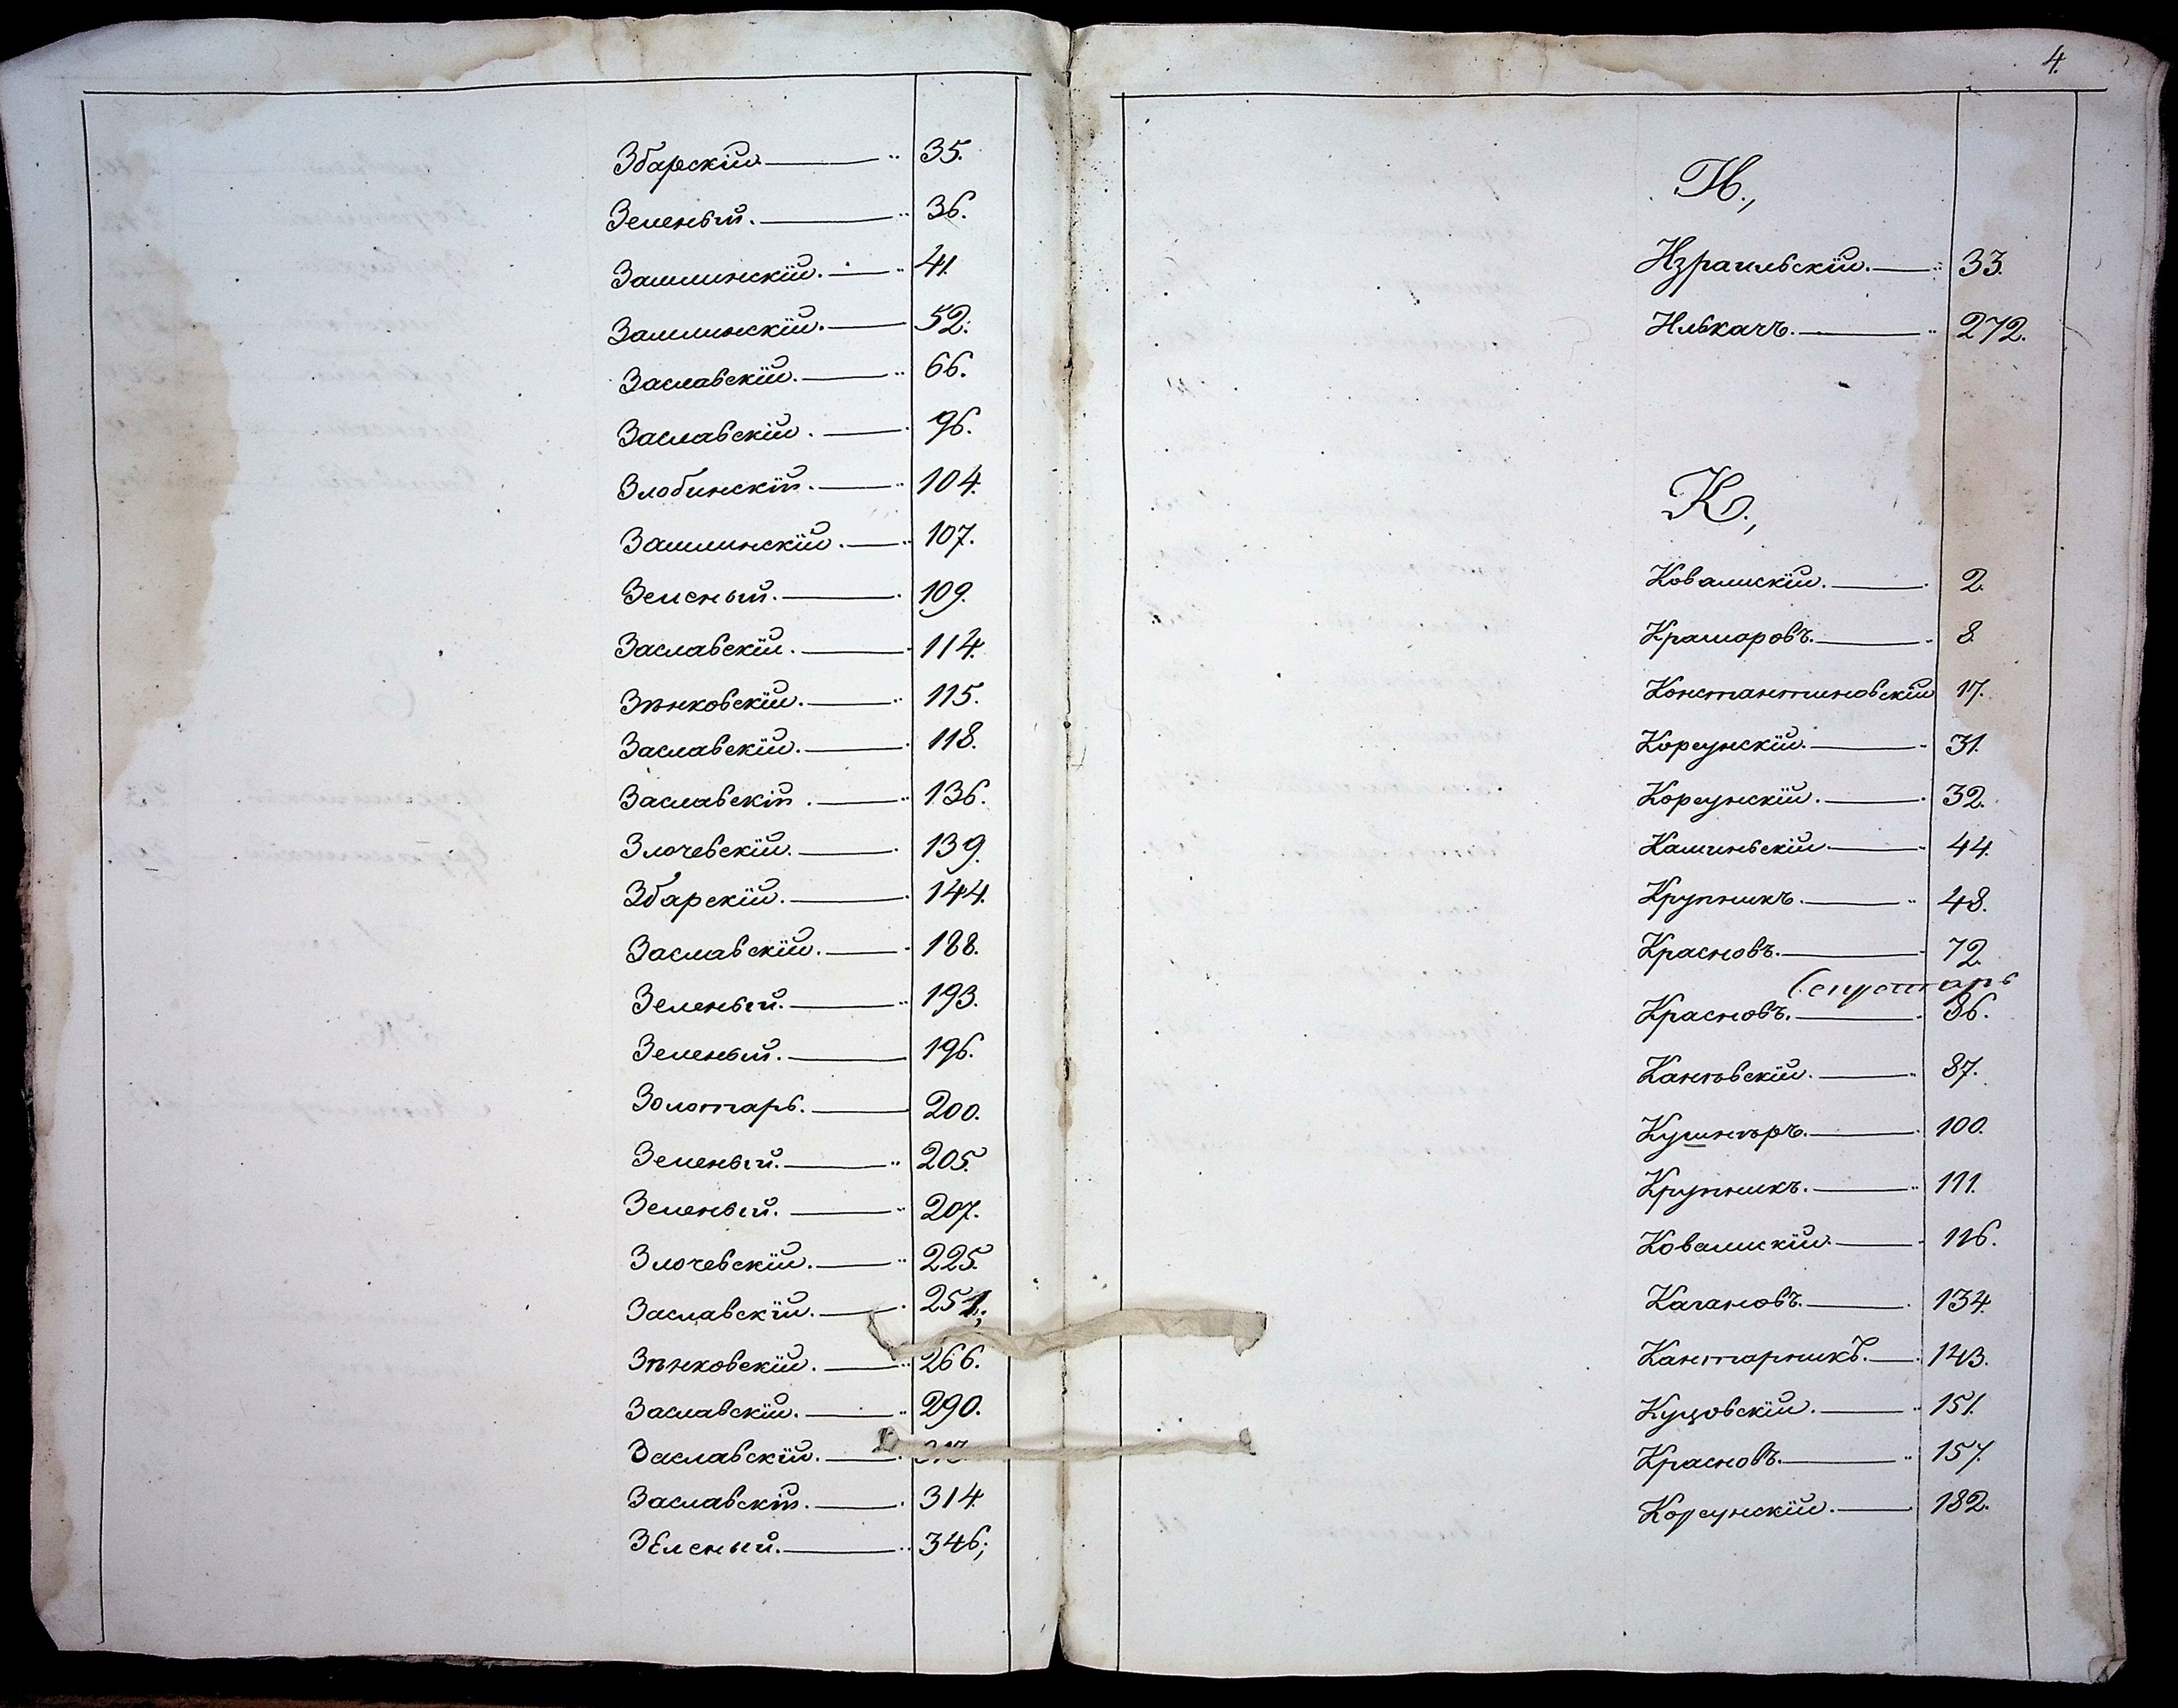 Збарскій. 35.
Зеленый. 36.
Зашлинскій. 41.
Зашлинскій. 52.
Заславскій. 66.
Заславскій. 96.
Злобинскій. 104.
Зашлинскій. 107.
Зеленый. 109.
Заславскій. 114.
Зѣнковскій. 115.
Заславскій. 118.
Заславскій. 136.
Злочевскій. 139.
Збарскій. 144.
Заславскій. 188.
Зеленый. 193.
Зеленый. 196.
Золотарь. 200.
Зеленый. 205.
Зеленый. 207.
Злочевскій. 225.
Заславскій. 251;
Зѣнковскій. 266.
Заславскій. 290.
Заславскій.
Заславскій. 314.
Зеленый. 346;
4.
И.,
Израильскій. 33.
Илькачъ. 272.
К.,
Ковалискій. 2.
Крамаровъ. 8.
Константиновскій 17.
Корсунскій. 31.
Корсунскій. 32.
Калиньскій. 44.
Крупникъ. 48.
Красновъ. 72.
Красновъ. 86.
Канѣвскій. 87.
Кушнѣръ. 100.
Крупникъ. 111.
Ковалискій. 116.
Качановъ. 134.
Кантарникъ. 143.
Куцовскій. 151.
Красновъ. 157.
Корсунскій. 182.